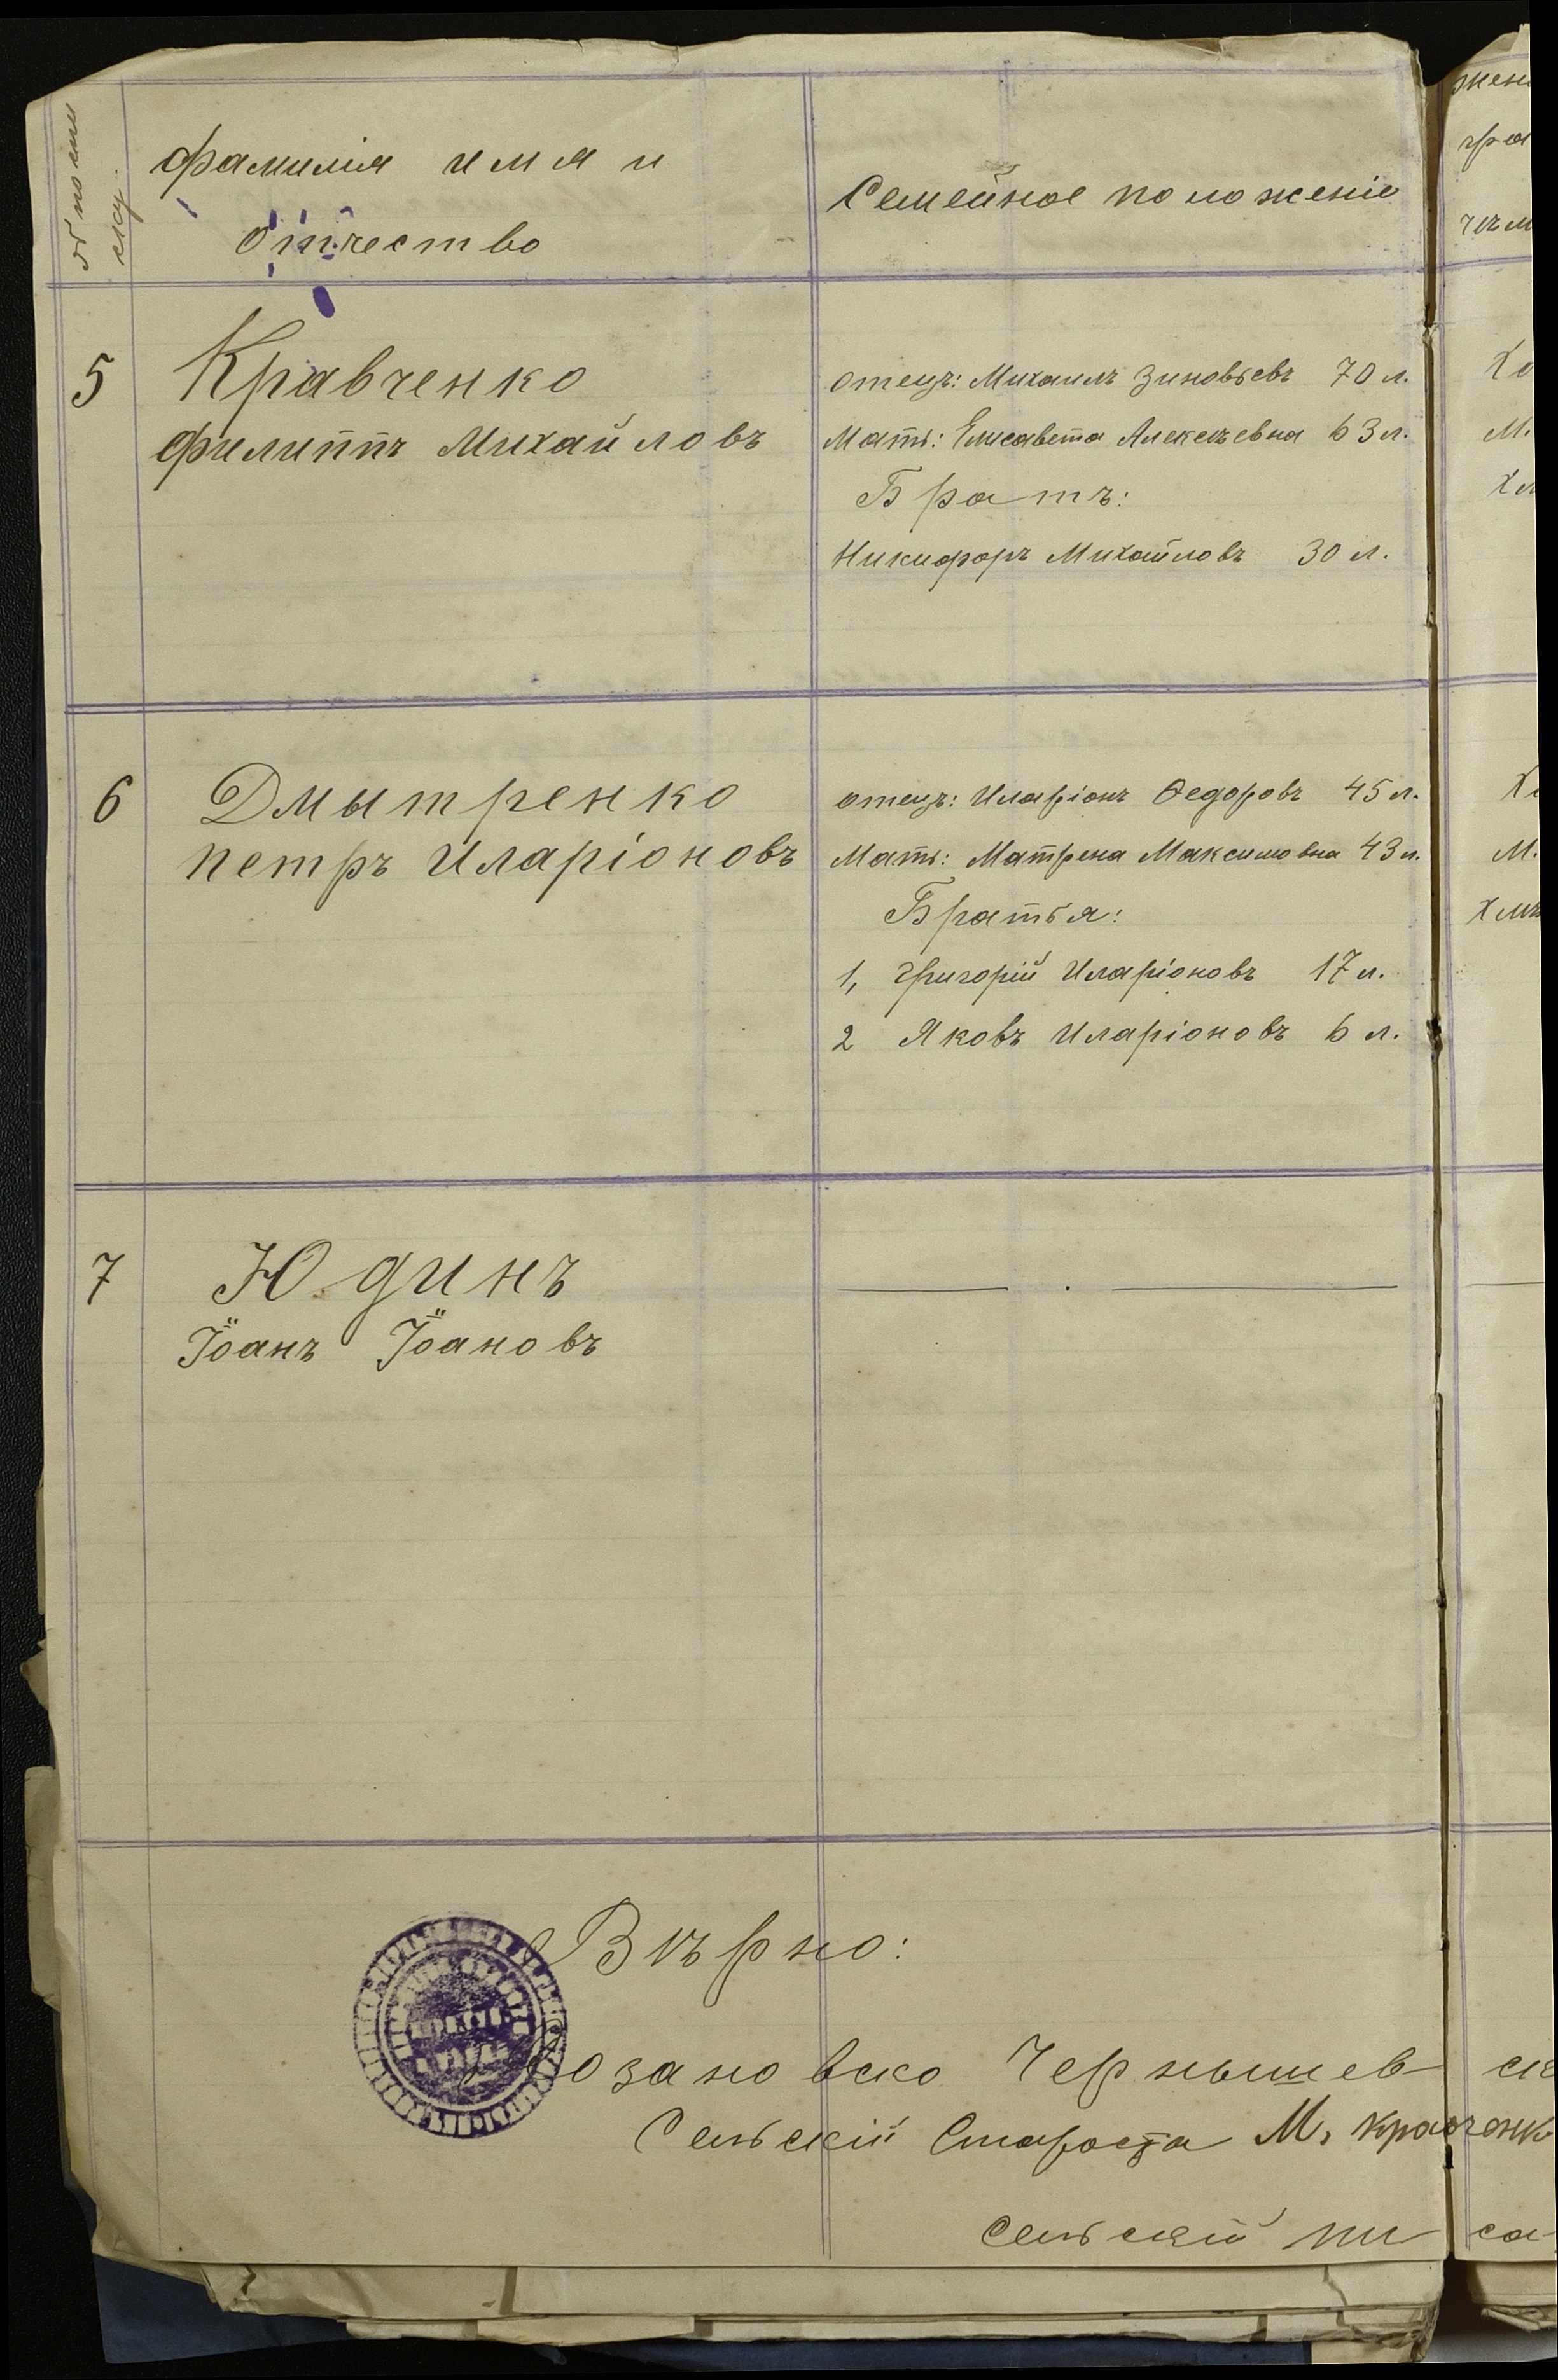 № по спи
ску.
Фамилія имя и
отчество
Семейное положеніе
5
Кравченко
Филиппъ Михайловъ
отецъ: Михаилъ Зиновьевъ 70 л.
Мать: Елисавета Алексѣевна 63 л.
Братъ:
Никифоръ Михайловъ 30 л.
6
Дмытренко
Петръ Иларіоновъ
отецъ: Иларіонъ Ѳедоровъ 45 л.
Мать: Матрена Максимовна 43 л.
Братья:
1, Григорій Иларіоновъ 17 л.
2 Яковъ Иларіоновъ 6 л.
7
Юдинъ
Іоанъ Іоановъ
Вѣрно:
озановско Чернышев ск
Сельскій Староста М. Кравченк
Сельскій пи са